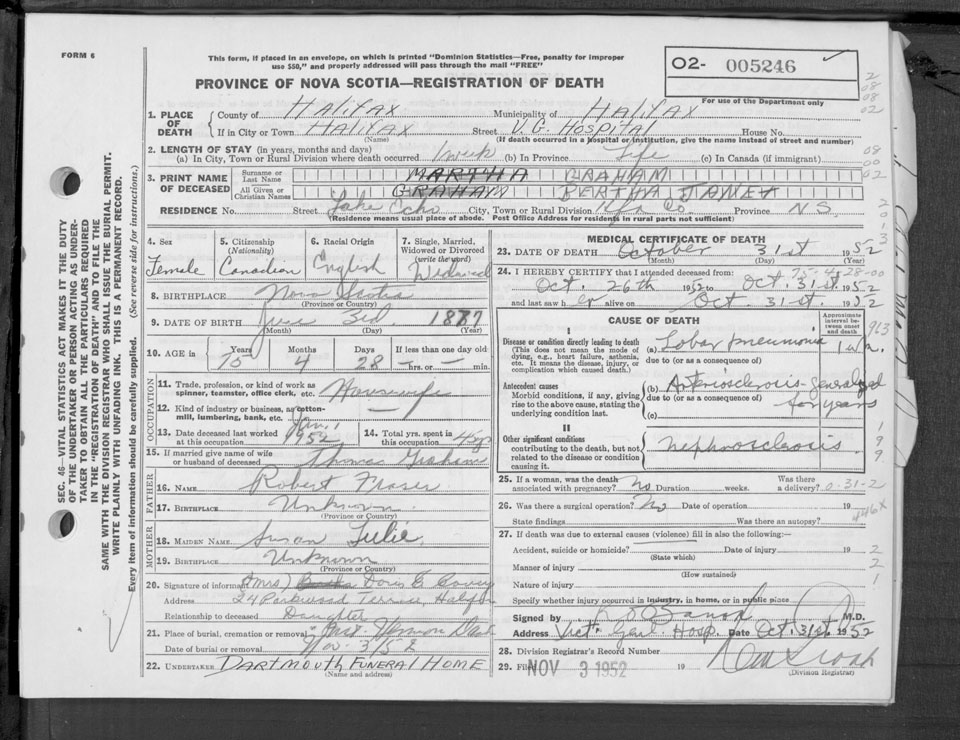 FORM 6
This form, if placed in an envelope, on which is printed "Dominion Statistics—Free, penalty for improper
use $50," and properly addressed will pass through the mail "FREE"
PROVINCE OF NOVA SCOTIA—REGISTRATION OF DEATH
O2- 005246
For use of the Department only
1. PLACE OF DEATH
County of Halifax Municipality of Halifax
If in City or Town Halifax Street V.G. Hospital House No.
(Name) (If death occurred in a hospital or institution, give the name instead of street and number)
2. LENGTH OF STAY (in years, months and days)
(a) In City, Town or Rural Division where death occurred 1 week (b) In Province Life (c) In Canada (if immigrant)
3. PRINT NAME OF DECEASED
Surname or Last Name MARTHA GRAHAM
All Given or Christian Names GRAHAM BERTHA JANET
RESIDENCE No. Street Lake Echo City, Town or Rural Division Hfx Co. Province N S
(Residence means usual place of abode. Post Office Address for residents in rural parts not sufficient)
4. Sex Female
5. Citizenship (Nationality) Canadian
6. Racial Origin English
7. Single, Married, Widowed or Divorced (write the word) Widowed
8. BIRTHPLACE Nova Scotia
(Province or Country)
9. DATE OF BIRTH June 3rd 1877
(Month) (Day) (Year)
10. AGE in Years Months Days If less than one day old
75 4 28 — hrs. or — min.
OCCUPATION
11. Trade, profession, or kind of work as
spinner, teamster, office clerk, etc. Housewife
12. Kind of industry or business, as cotton-
mill, lumbering, bank, etc. —
13. Date deceased last worked
at this occupation Jan. 1 1952
14. Total yrs. spent in
this occupation
15. If married give name of wife
or husband of deceased Thomas Graham
FATHER
16. NAME Robert Fraser
17. BIRTHPLACE Unknown
(Province or Country)
MOTHER
18. MAIDEN NAME Susan
19. BIRTHPLACE Unknown
(Province or Country)
20. Signature of informant (Mrs) Doris E
Address 24 Parkwood Terrace, Halifax
Relationship to deceased Daughter
21. Place of burial, cremation or removal
Date of burial or removal Nov. 3/52
22. UNDERTAKER DARTMOUTH FUNERAL HOME
(Name and address)
MEDICAL CERTIFICATE OF DEATH
23. DATE OF DEATH October 31st 1952
(Month) (Day) (Year)
75-4-28-00
24. I HEREBY CERTIFY that I attended deceased from:
Oct. 26th 1952 to Oct. 31st. 1952
and last saw her alive on Oct 31st. 1952
CAUSE OF DEATH
Approximate interval between onset and death
I
Disease or condition directly leading to death
(This does not mean the mode of
dying, e.g., heart failure, asthenia,
etc. It means the disease, injury, or
complication which caused death.)
(a) Lobar pneumonia 1 wk.
due to (or as a consequence of)
Antecedent causes
Morbid conditions, if any, giving
rise to the above cause, stating the
underlying condition last.
(b) Arteriosclerosis - generalized
due to (or as a consequence of) for years
(c)
II
Other significant conditions
contributing to the death, but not
related to the disease or condition
causing it.
Nephrosclerosis
25. If a woman, was the death
associated with pregnancy? No Duration weeks. Was there
a delivery? 0-31-2
26. Was there a surgical operation? No Date of operation 19
State findings Was there an autopsy?
446X
27. If death was due to external causes (violence) fill in also the following:—
Accident, suicide or homicide? Date of injury 19
(State which)
Manner of injury
(How sustained)
Nature of injury
Specify whether injury occurred in industry, in home, or in public place
Signed by M.D.
Address Vict. Genl. Hosp. Date Oct. 31st. 1952
28. Division Registrar's Record Number
29. Filed NOV 3 1952 19
(Division Registrar)
SEC. 46—VITAL STATISTICS ACT MAKES IT THE DUTY
OF THE UNDERTAKER OR PERSON ACTING AS UNDER-
TAKER "TO OBTAIN ALL THE PARTICULARS REQUIRED
IN THE "REGISTRATION OF DEATH" AND TO FILE THE
SAME WITH THE DIVISION REGISTRAR WHO SHALL ISSUE THE BURIAL PERMIT.
WRITE PLAINLY WITH UNFADING INK. THIS IS A PERMANENT RECORD.
Every item of information should be carefully supplied. (See reverse side for instructions.)